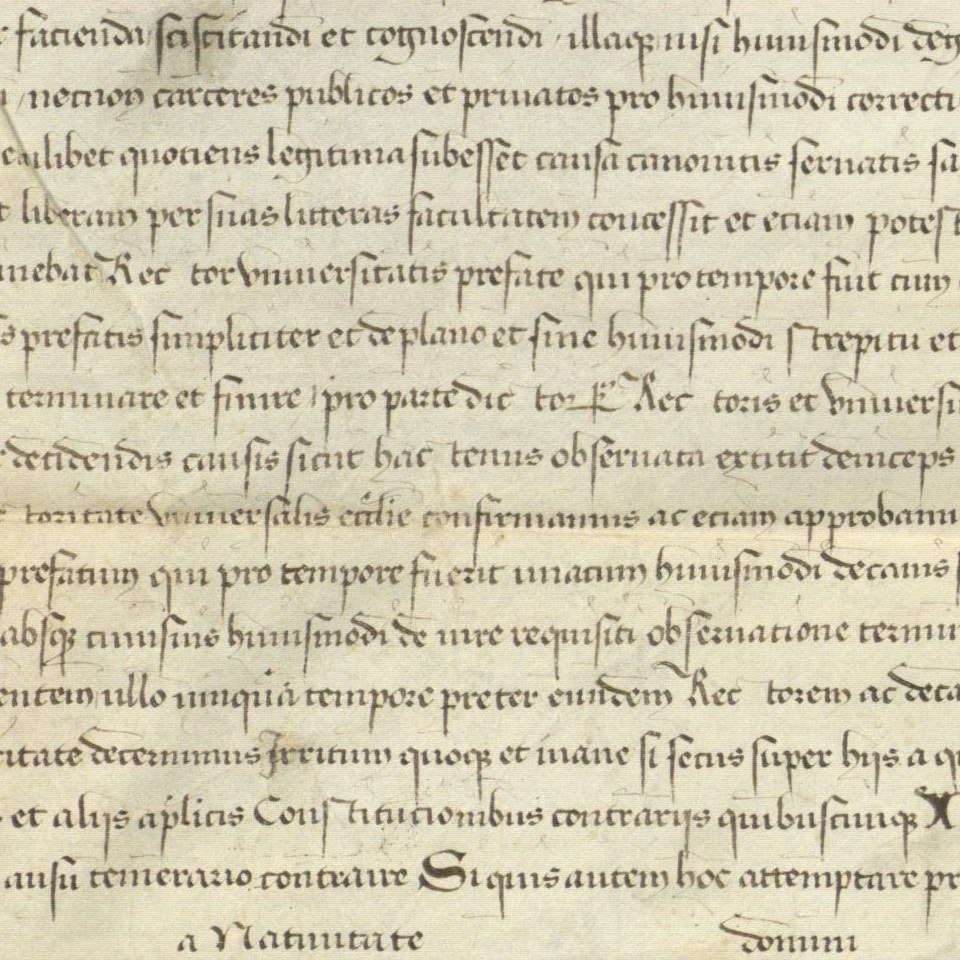 facienda sciscitandi et cognoscendi illasq nisi huiusmodi
necnon carceres publicos et priuatos pro huiusmodi correcti
libet quotiens legitima subesset causa canonicis seruatis
liberam per suas litteras facultatem concessit et eciam potest
Rec tor vniuersitatis prefate qui pro tempore fuit cum
prefatis simpliciter et de plano et sine huiusmodi strepitu et
terminare et finire pro parte dic tor Rec toris et vniuersi
decidendis causis sicut hac tenus obseruata extitit deinceps
toritate vniuersalis ecclie confirmamus ac eciam approbamu
prefatum qui pro tempore fuerit unacum huiusmodi decanis
absq cuiusuis huiusmodi de iure requisiti obseruatione termin
entem ullo umquam tempore preter eundem Rec torem ac deca
decernimus Irritum quoq et inane si secus super hijs a q
et alijs aplicis Constitucionibus contrarijs quibuscunq
ausu temerario contraire Si quis autem hoc attemptare pr
a Natiuitate domini